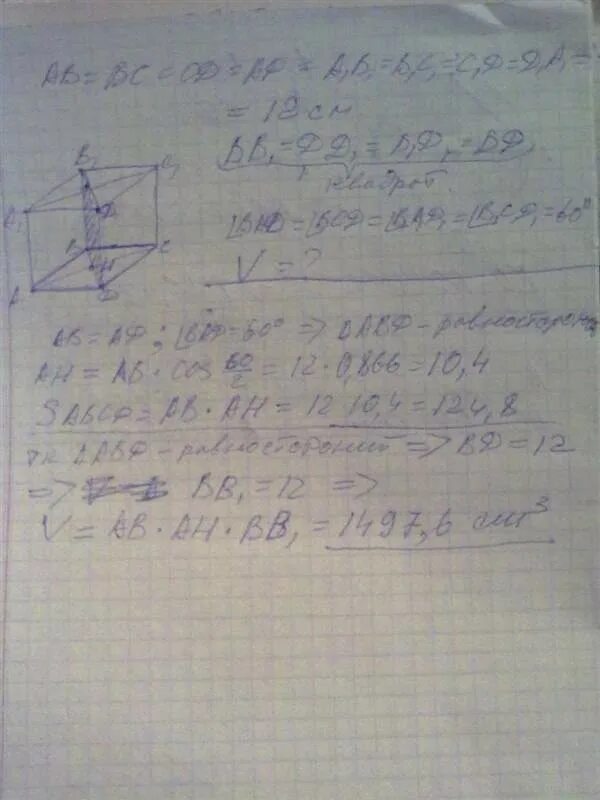 AB = BC = CD = AD = A₁B₁ = B₁C₁ = C₁D = D₁A₁ =
= 12 см
BB₁ = DD₁ = B₁D₁ = BD
квадрат
∠BAD = ∠BCD = ∠B₁A₁D₁ = ∠B₁C₁D₁ = 60°
V = ?
B₁ C₁
A₁ D₁
B C
H
A D
AB = AD; ∠BAD = 60° => ΔABD - равносторон
AH = AB · cos 60/2 = 12 · 0,866 = 10,4
SABCD = AB · AH = 12 10,4 = 124,8
тк ΔABD - равносторонний => BD = 12
=> BB₁ = 12 =>
V = AB · AH · BB₁ = 1497,6 см³